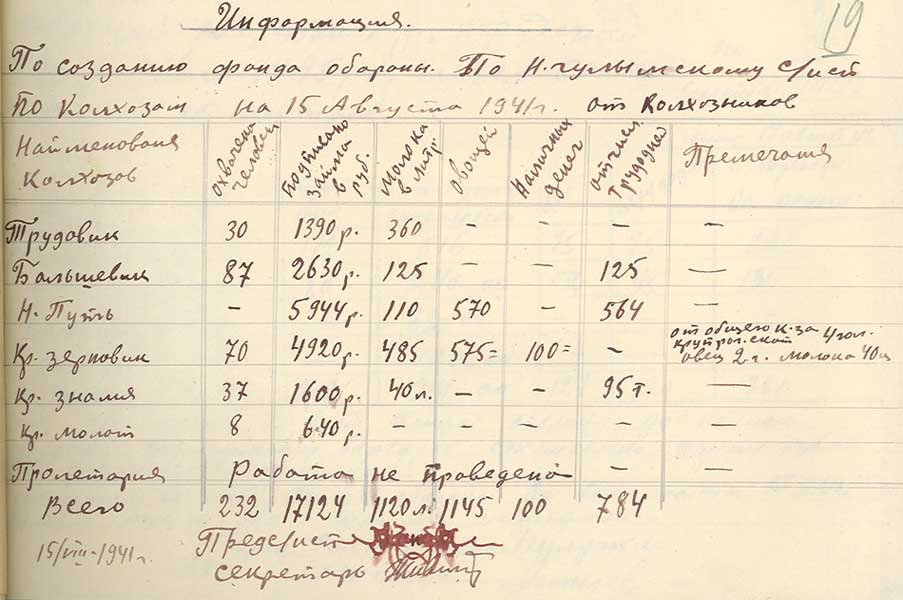 19
Информация.
По созданию фонда обороны. По Н-чулымскому с/исп
по колхозам на 15 Августа 1941г. от колхозников
Наименования Колхозов охвачено человек подписано займа в руб. молока в литр овощей Наличных денег отчисл. Трудодней Премечания
Трудовик 30 1390 р. 360 – – – –
Балшевик 87 2630 р. 125 – – 125 —
Н. Путь – 5944 р. 110 570 – 564 —
Кр. зерновик 70 4920 р. 485 575= 100= – от общего к-за 4 гол. овец 2-г. молока 40 л
Кр. знамя 37 1600 р. 40 л. – – 95 т. —
Кр. молот 8 640 р. – – – – —
Пролетария Работа не проведена – —
Всего 232 17124 1120 л. 1145 100 784
15/VIII-1941г. Предс/исп
секретарь